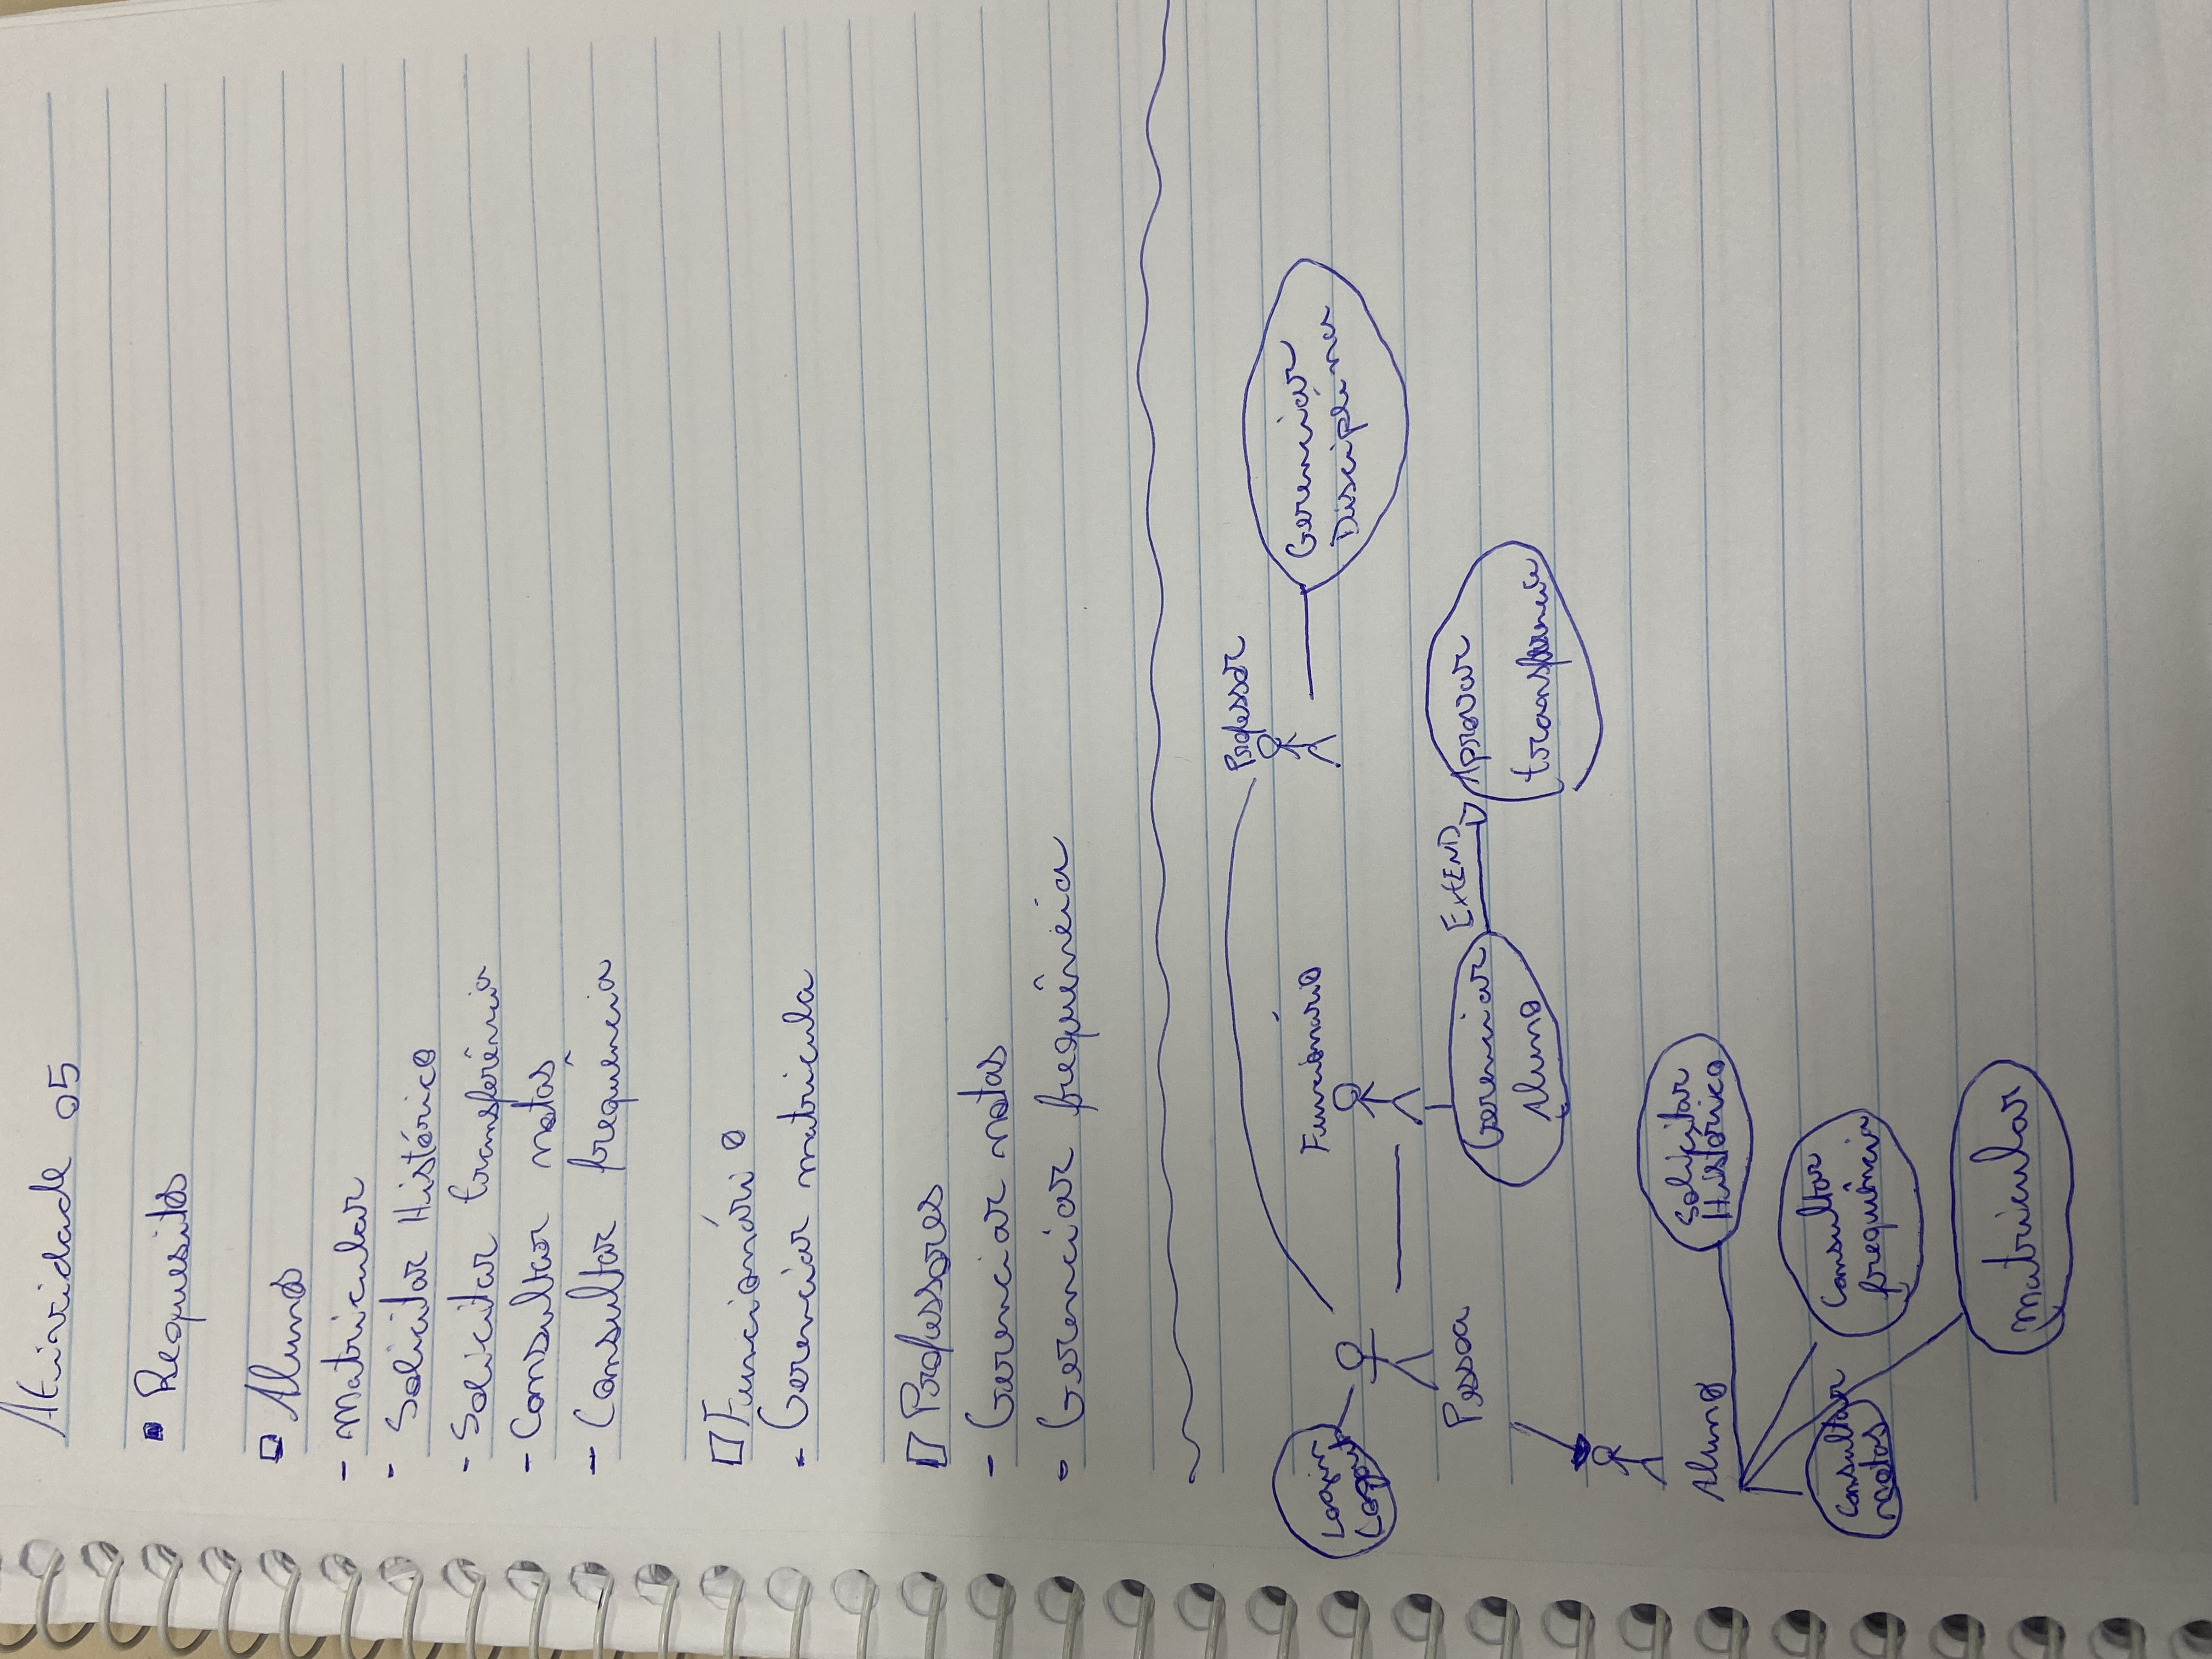 Atividade 05
Requesitos
Aluno
- Matricular
- Solicitar Histórico
- Solicitar transferência
- Consultar notas
- Consultar frequência
Funcionário
- Gerenciar matricula
Professores
- Gerenciar notas
- Gerenciar frequência
Professor
Gerenciar
Disciplina
Funcionário
Login
Logout
Pessoa
Gerenciar
Aluno
EXTEND
Aprovar
transferencia
Aluno
Solicitar
Histórico
Consultar
notas
Consultar
frequência
Matricular